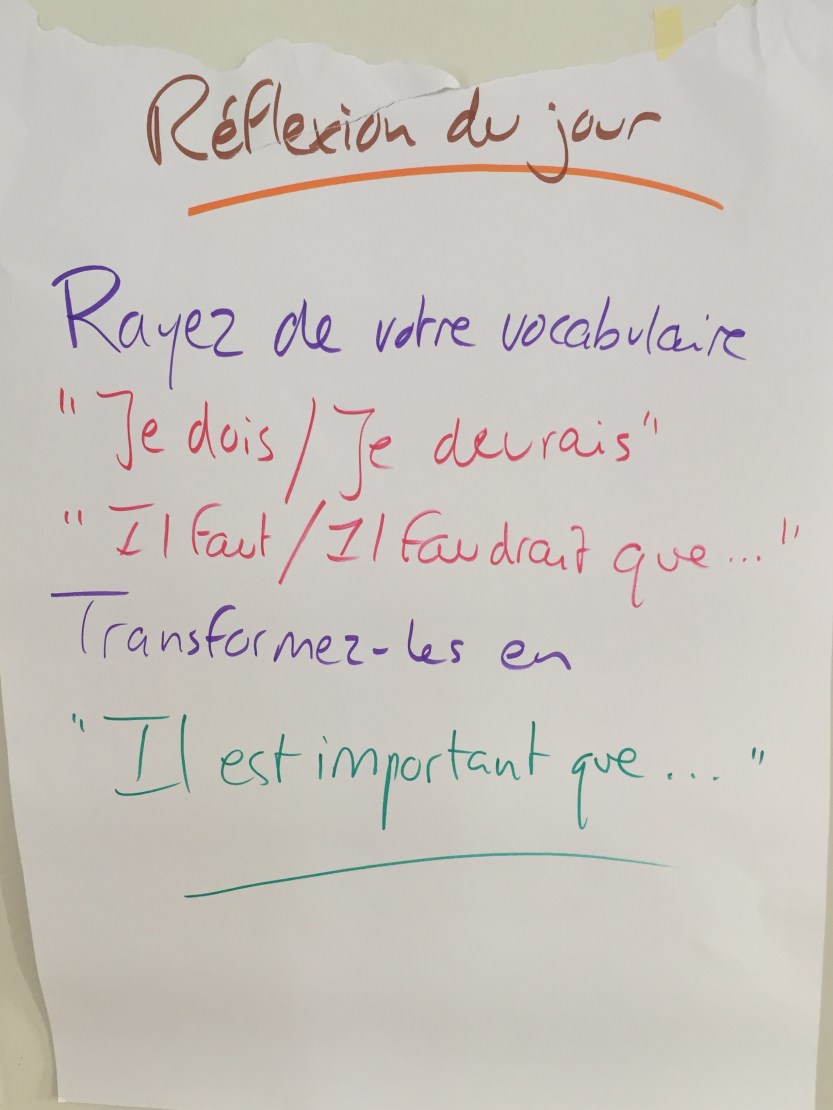 Réflexion du jour
Rayez de votre vocabulaire
"Je dois / Je devrais"
"Il faut / Il faudrait que..."
Transformez-les en
"Il est important que..."